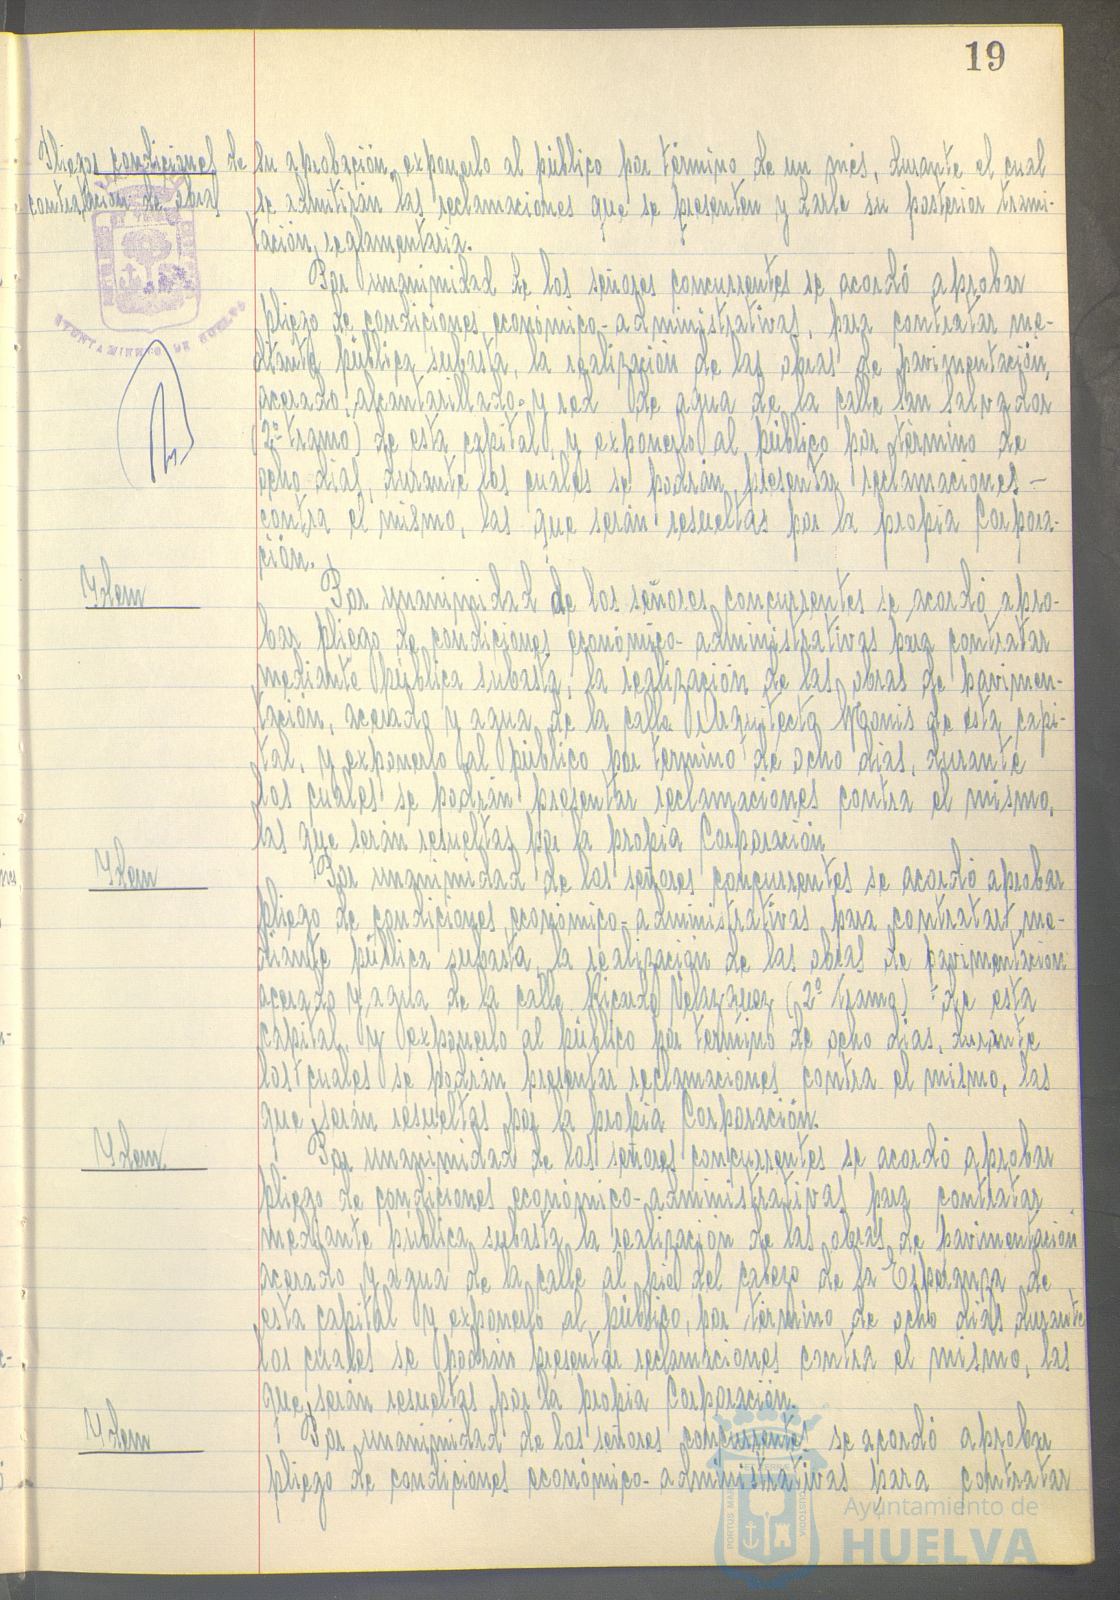 19
Pliegos condiciones de
contratación de obras
su aprobación, exponerlo al público por término de un més, durante el cual
se admitirán las reclamaciones que se presenten y darle su posterior trami-
tación, reglamentaria.
Por unanimidad de los señores concurrentes se acordó aprobar
pliego de condiciones económico-administrativas, para contratar me-
diante pública subasta, la realización de las obras de pavimentación,
acerado, alcantarillado y red de agua de la calle San Salvador
(2º tramo) de esta capital, y exponerlo al público por término de
ocho dias, durante los cuales se podrán presentar reclamaciones -
contra el mismo, las que serán resueltas por la propia Corpora-
ción.
Idem
Por unanimidad de los señores concurrentes se acordó apro-
bar pliego de condiciones económico-administrativas para contratar
mediante pública subasta, la realización de las obras de pavimen-
tación, acerado y agua de la calle Arquitecto Monis de esta capi-
tal, y exponerlo al público por término de ocho dias, durante
los cuales se podrán presentar reclamaciones contra el mismo,
las que serán resueltas por la propia Corporación
Idem
Por unanimidad de los señores concurrentes se acordó aprobar
pliego de condiciones económico-administrativas para contratar me-
diante pública subasta, la realización de las obras de pavimentación
acerado y agua de la calle Ricardo Velazquez (2º tramo) de esta
capital, y exponerlo al público por término de ocho dias, durante
los cuales se podrán presentar reclamaciones contra el mismo, las
que serán resueltas por la propia Corporación.
Idem
Por unanimidad de los señores concurrentes se acordó aprobar
pliego de condiciones económico-administrativas para contratar
mediante pública subasta, la realización de las obras de pavimentación
acerado y agua de la calle al pie del cabezo de la Esperanza de
esta capital y exponerlo al público, por término de ocho dias durante
los cuales se podrán presentar reclamaciones contra el mismo, las
que serán resueltas por la propia Corporación.
Idem
Por unanimidad de los señores concurrentes se acordó aprobar
pliego de condiciones económico-administrativas para contratar
AYUNTAMIENTO DE HUELVA
PORTUS MARIS ET TERRAE CUSTODIA
Ayuntamiento de
HUELVA